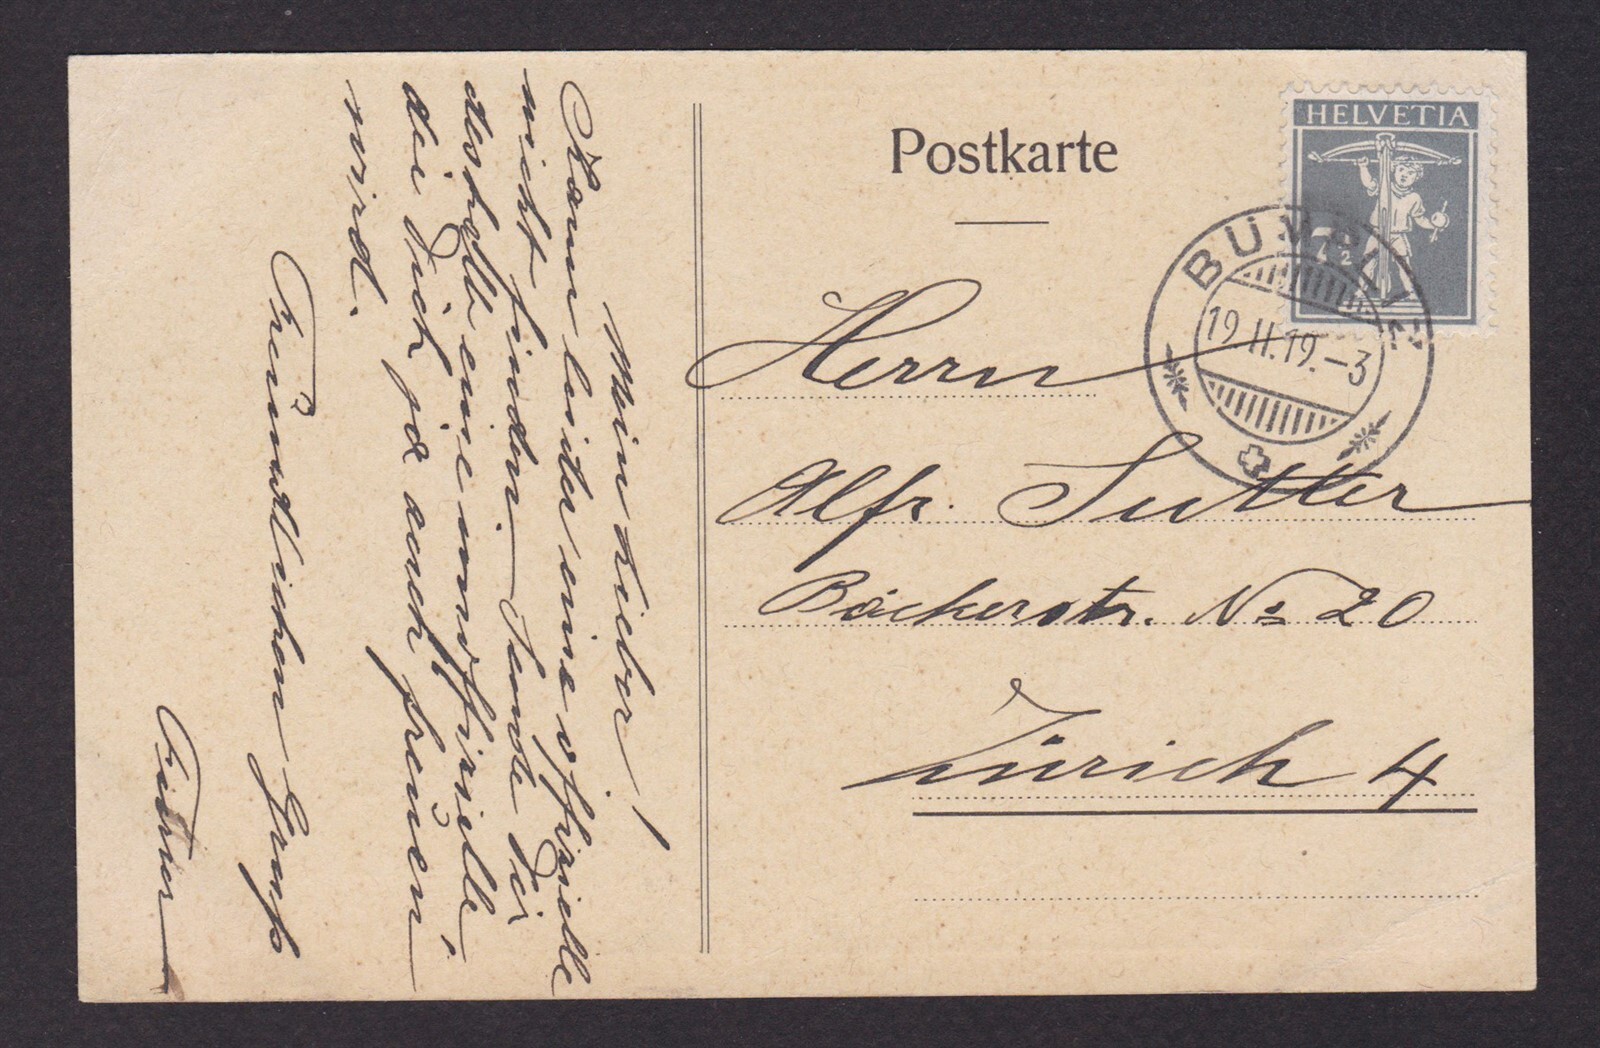 Mein Lieber!
Kann leider eine offizielle
nicht finden. Sende Dir
deshalb eine innoffizielle,
die Dich ja auch freuen
wird.
Freundlichen Gruss
Postkarte
HELVETIA
7½
BÜMPLIZ
19.II.19.–3
Herrn
Alfr. Sutter
Bäckerstr. No 20
Zürich 4